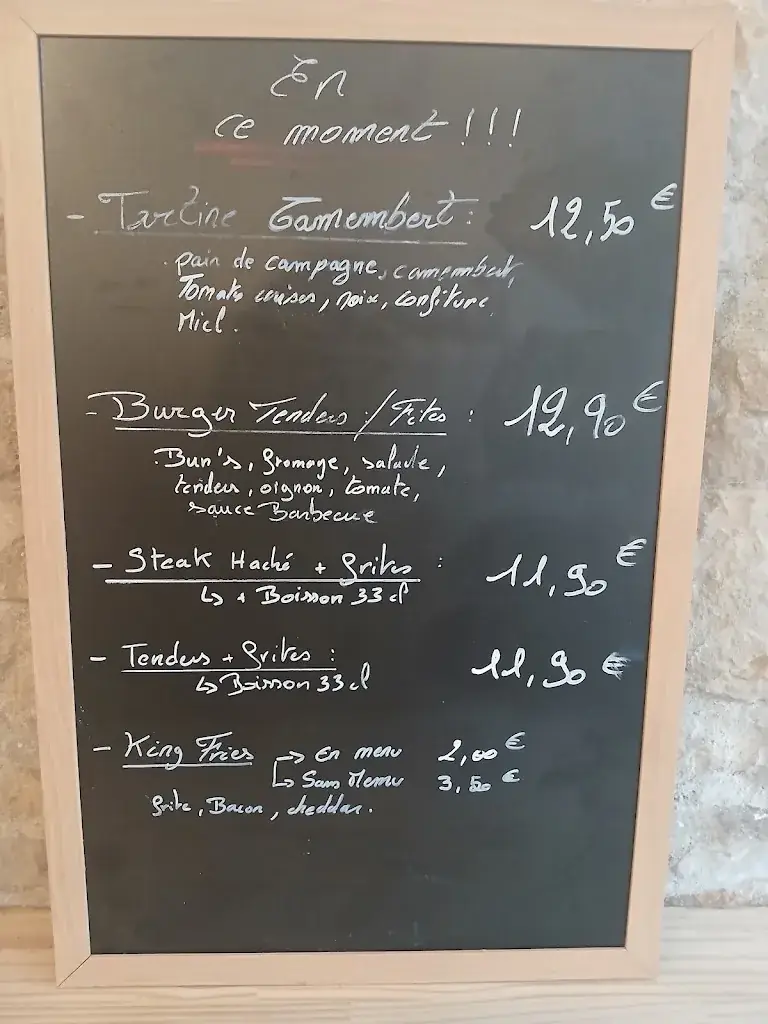 En
ce moment !!!
- Tartine Camembert : 12,50 €
. pain de campagne, camembert,
Tomate cerises, noix, confiture
Miel.
- Burger Tenders / Frites : 12,90 €
. Bun's, fromage, salade,
tenders, oignon, tomate,
sauce Barbecue
- Steak Haché + frites : 11,90 €
↳ + Boisson 33 cl
- Tenders + frites : 11,90 €
↳ Boisson 33 cl
- King Fries → En menu 2,00 €
↳ Sans Menu 3,50 €
frite, Bacon, cheddar.